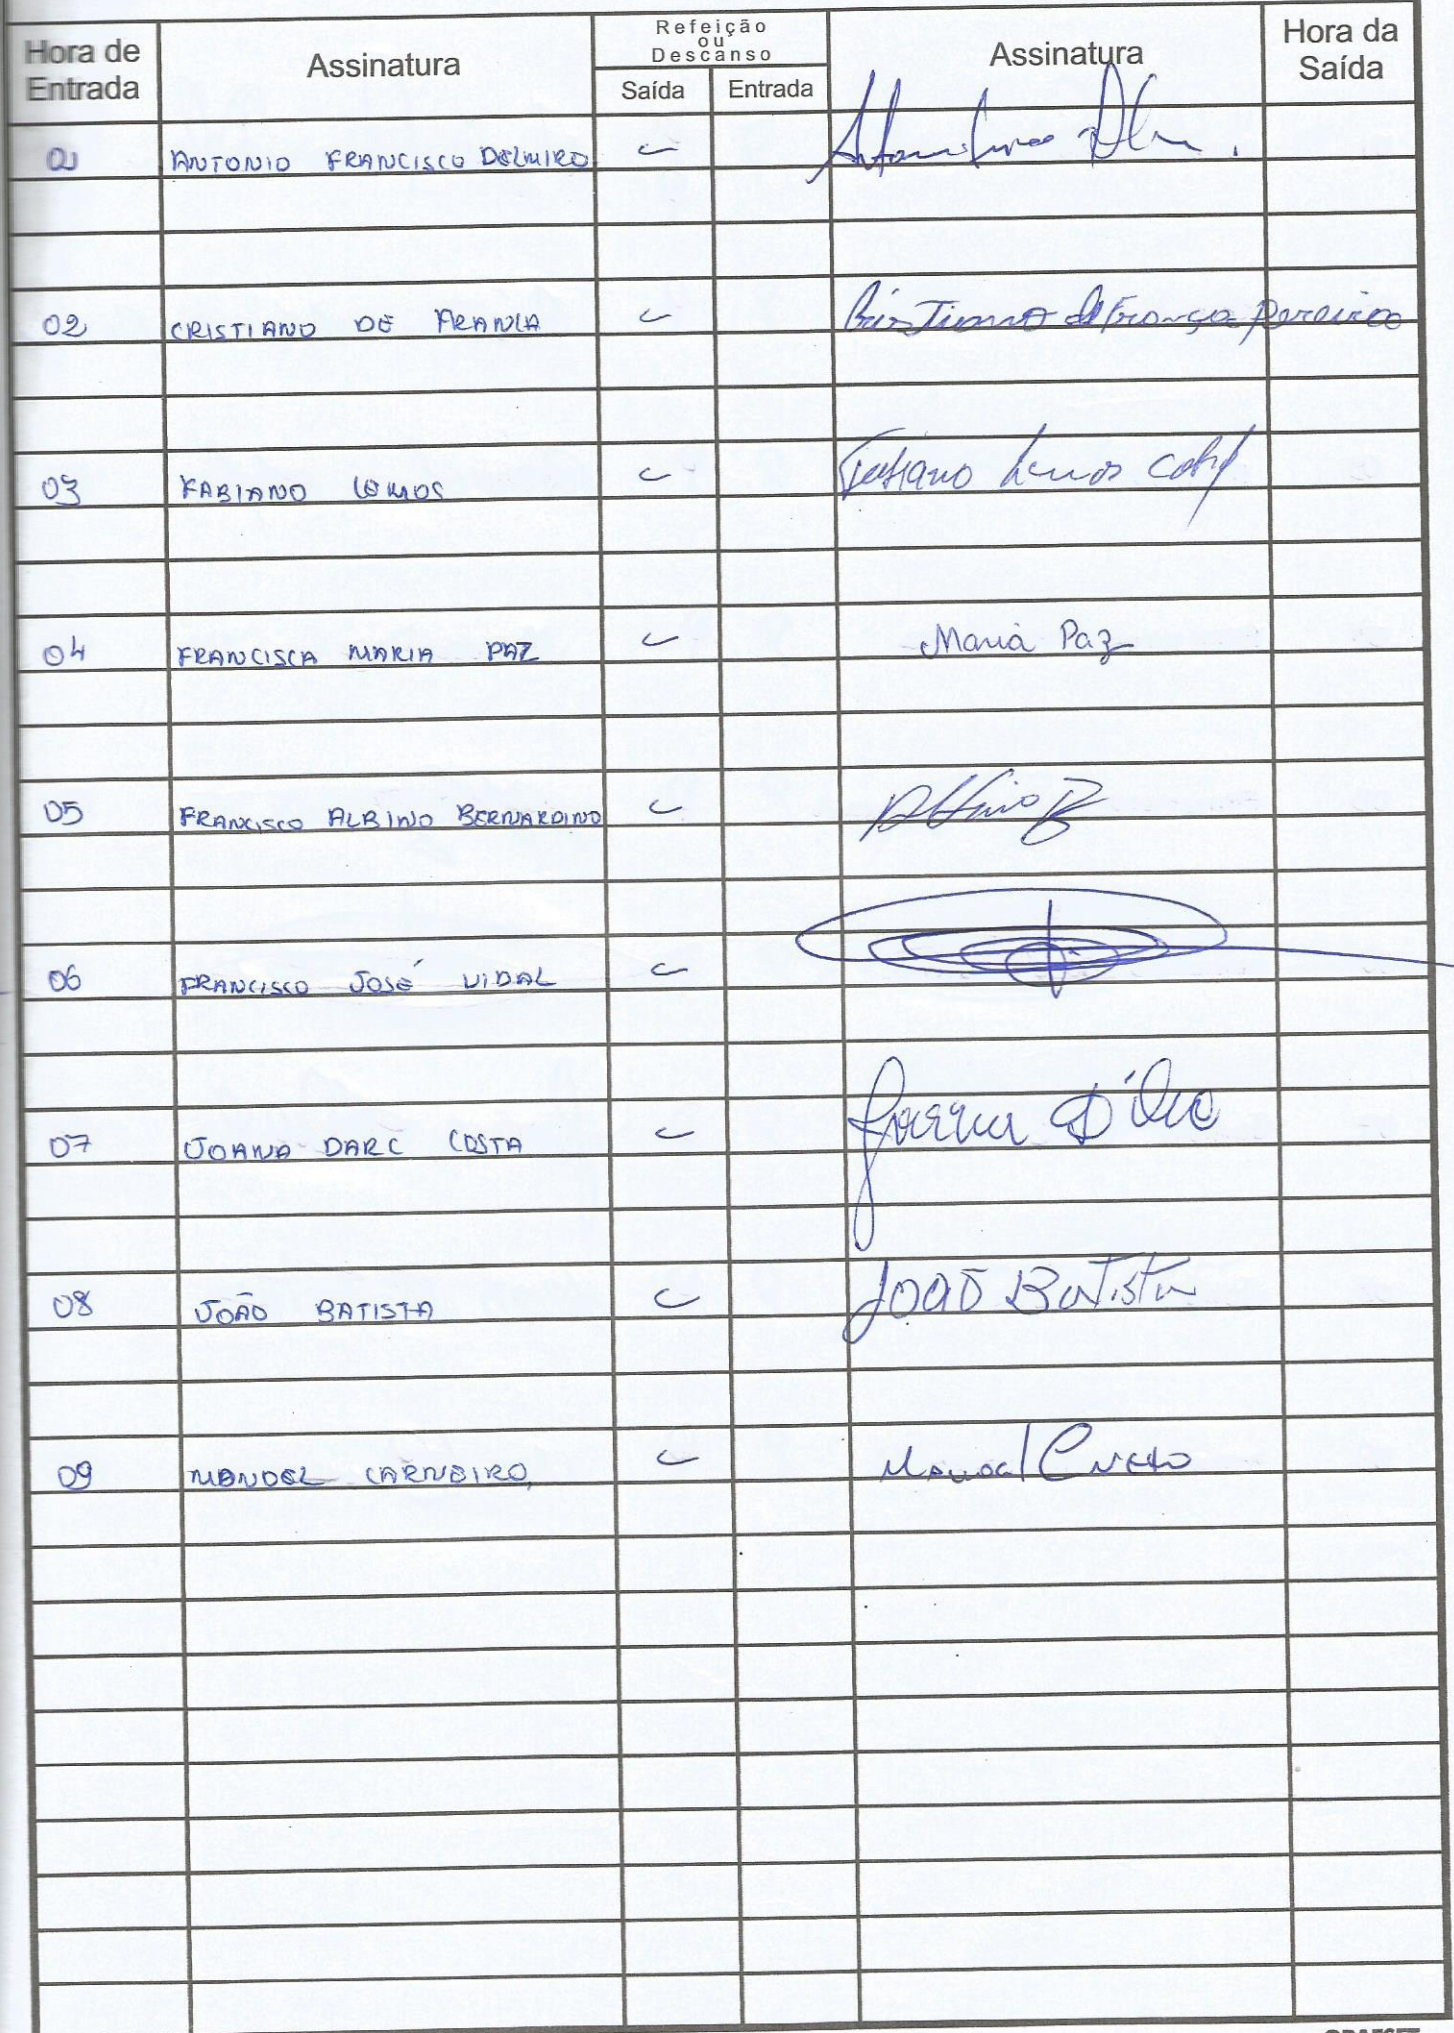 Hora de Entrada Assinatura Refeição ou Descanso Saída Entrada Assinatura Hora da Saída
01 ANTONIO FRANCISCO DELMIRO
02 CRISTIANO DE FRANCA Cristiano de França Pereira
03 FABIANO LEMOS Fabiano Lemos
04 FRANCISCA MARIA PAZ Maria Paz
05 FRANCISCO ALBINO BERNARDINO Albino B
06 FRANCISCO JOSÉ VIDAL
07 JOANA DARC COSTA Joana D'
08 JOÃO BATISTA JOÃO Batista
09 MANOEL CARNEIRO, Manoel